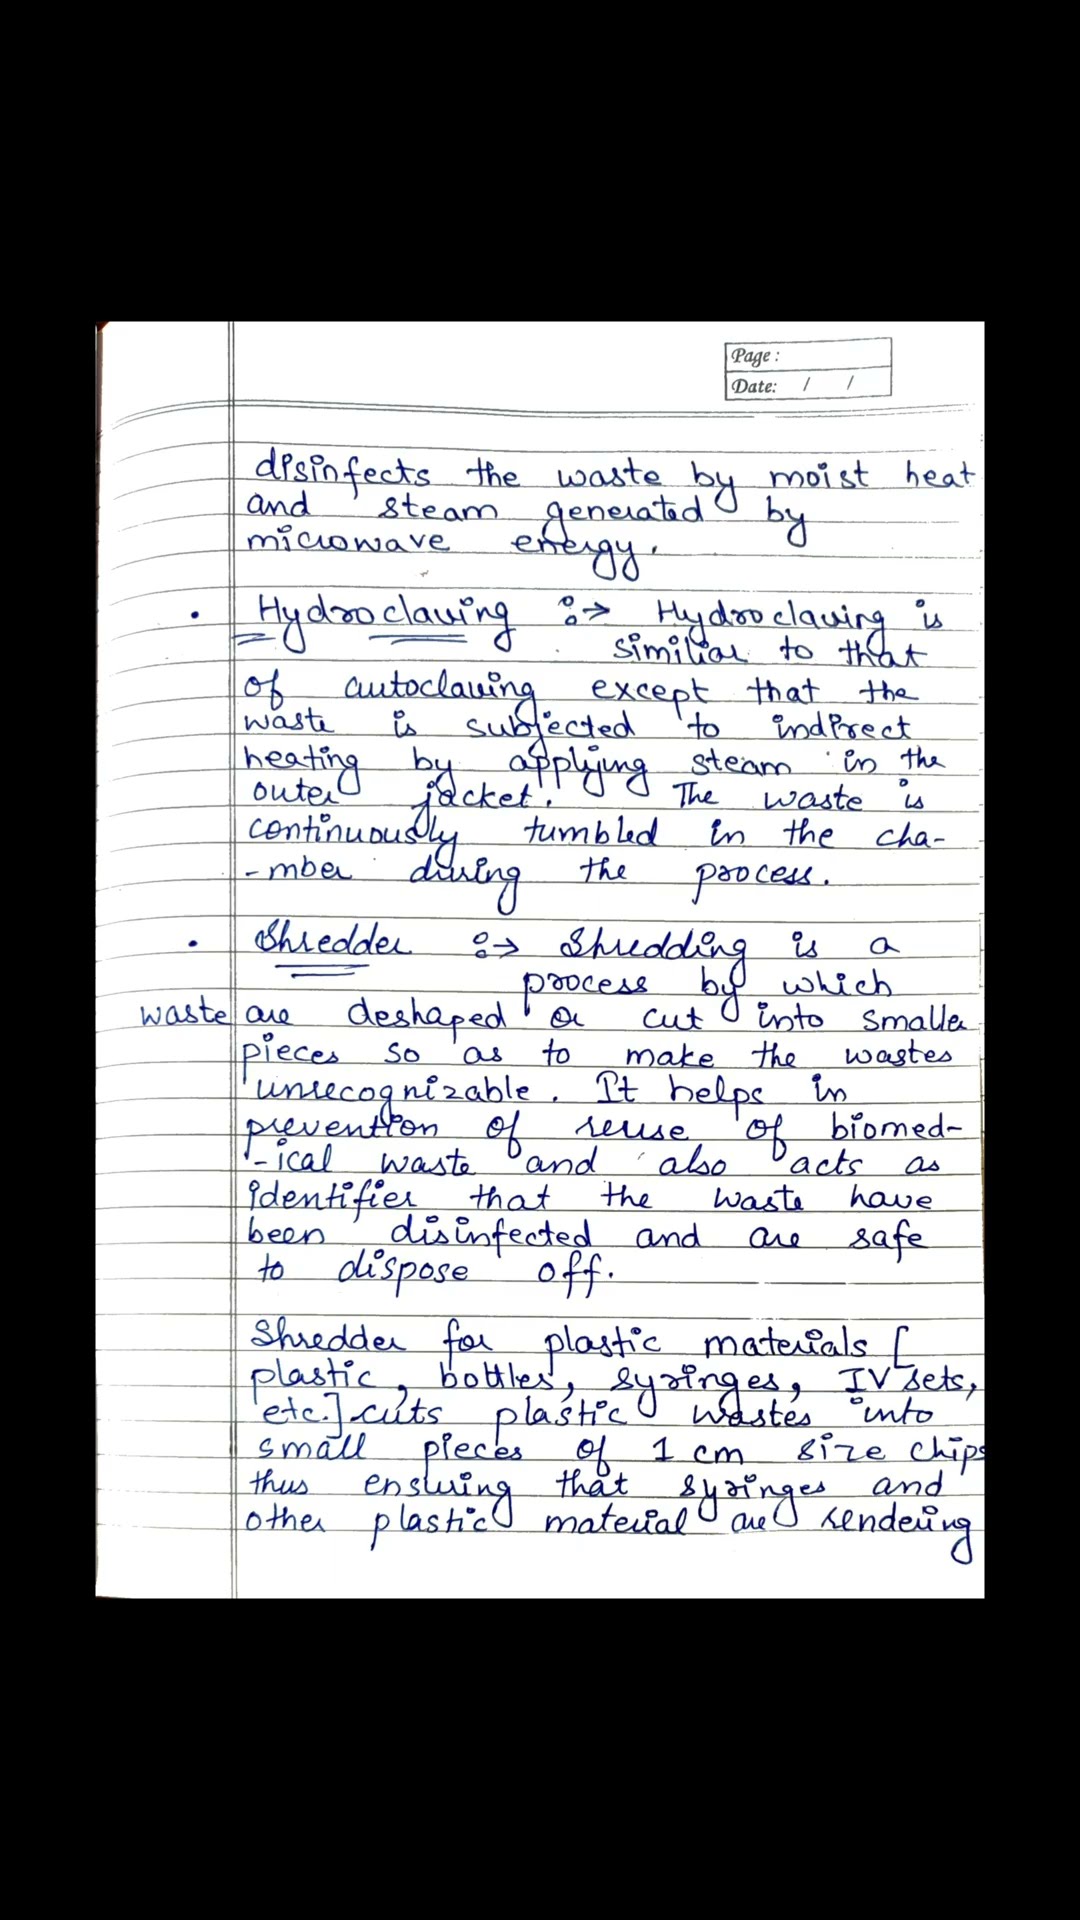 Page :
Date: / /
disinfects the waste by moist heat
and steam generated by
microwave energy.
• Hydroclaving :→ Hydroclaving is
similiar to that
of autoclaving except that the
waste is subjected to indirect
heating by applying steam in the
outer jacket. The waste is
continuously tumbled in the cha-
-mber during the process.
• Shredder :→ Shredding is a
process by which
waste are deshaped or cut into smaller
pieces so as to make the wastes
unrecognizable. It helps in
prevention of reuse of biomed-
-ical waste and also acts as
identifier that the waste have
been disinfected and are safe
to dispose off.
Shredder for plastic materials [
plastic, bottles, syringes, IV sets,
etc.] cuts plastic wastes into
small pieces of 1 cm size chips
thus ensuring that syringes and
other plastic material are rendering